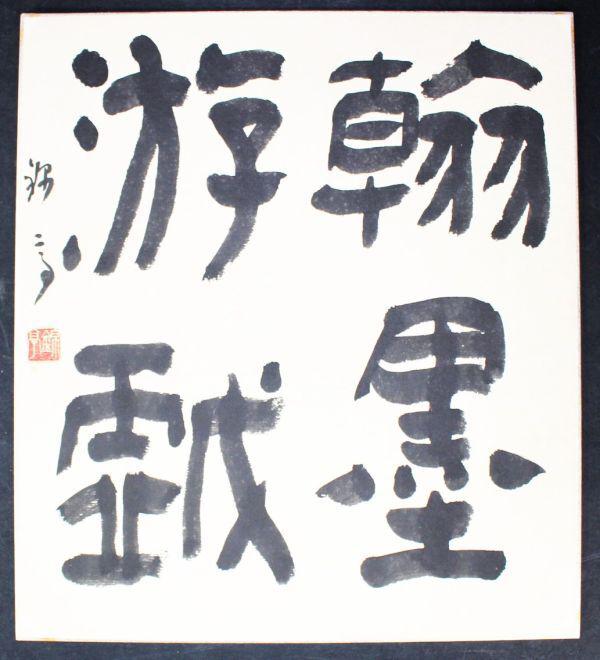 翰墨
游戯